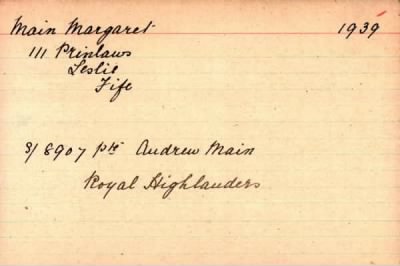 Main Margaret 1939
111 Prinlaws
Leslie
Fife
3/8907 Pte Andrew Main
Royal Highlanders